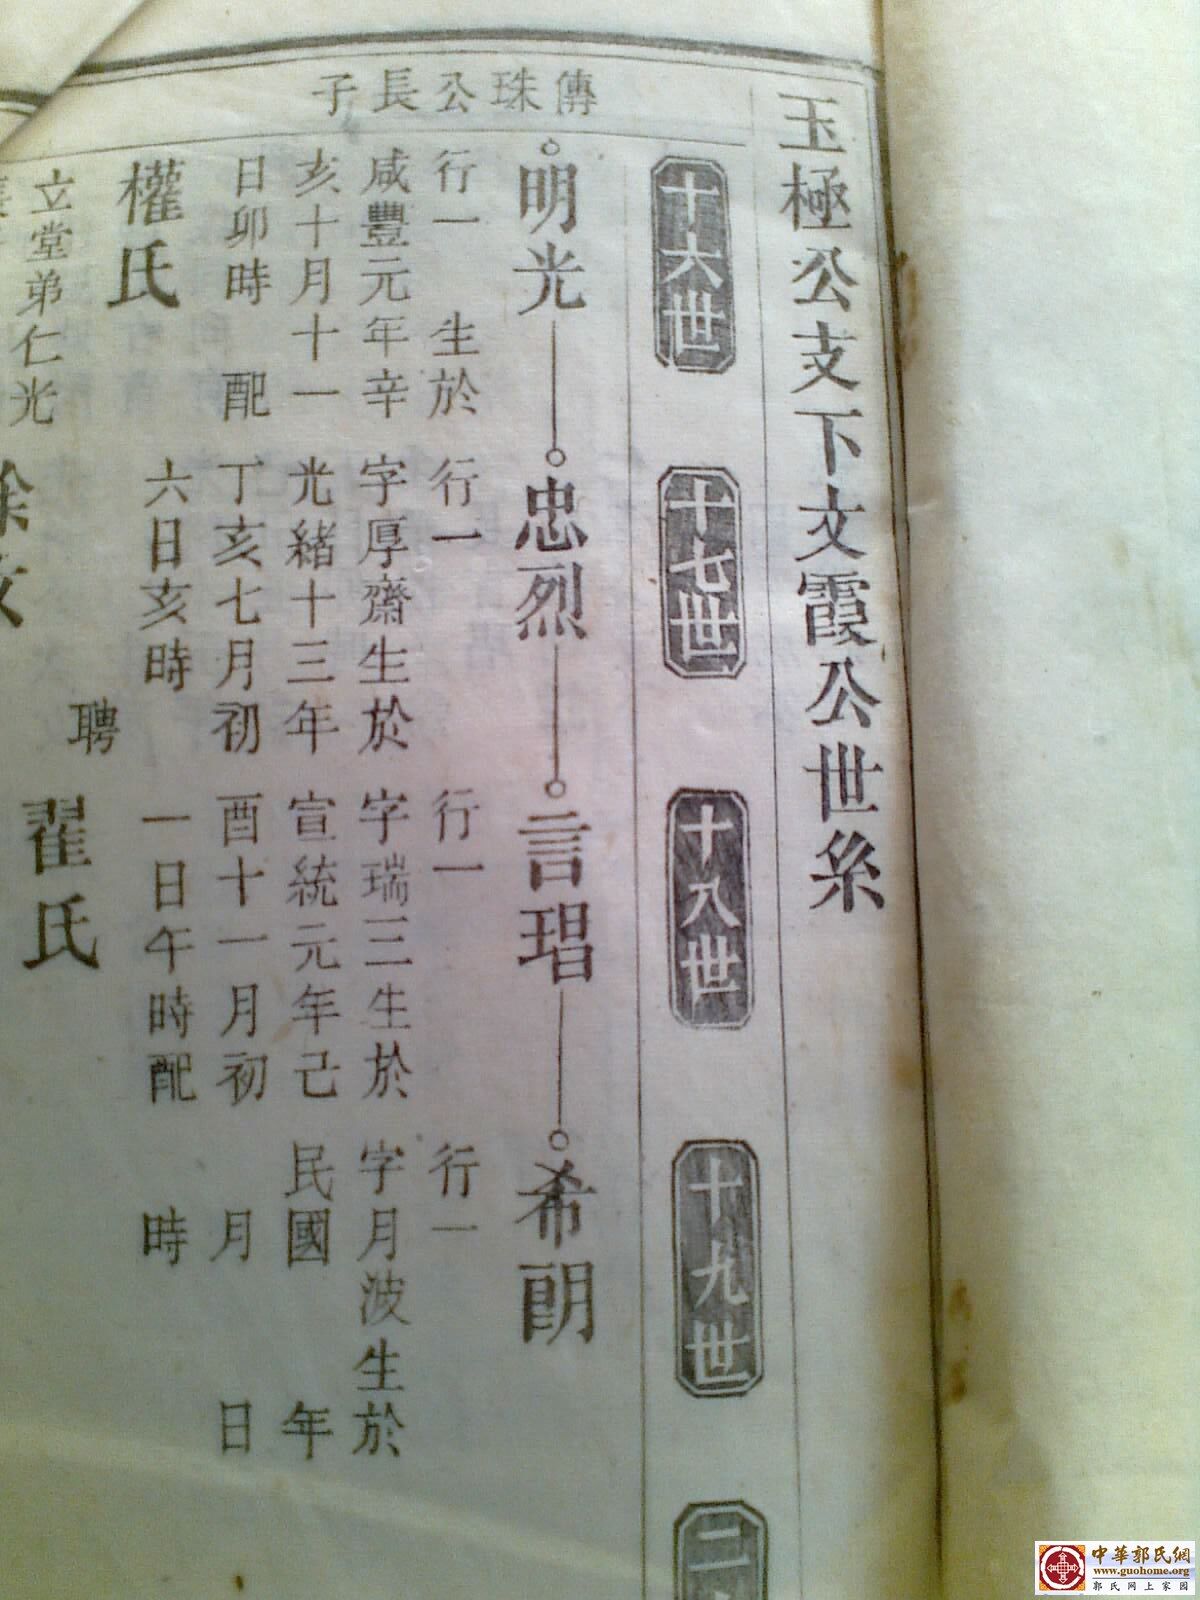 玉極公支下文霞公世系
十六世
十七世
十八世
十九世
二
傳珠公長子
明光
行一 生於
咸豐元年辛
亥十月十一
日卯時 配
權氏
立堂弟仁光
忠烈
行一
字厚齋生於
光緒十三年
丁亥七月初
六日亥時
聘
言琩
行一
字瑞三生於
宣統元年己
酉十一月初
一日午時配
翟氏
希朗
行一
字月波生於
民國 年
月 日
時
中華郭氏網
www.guohome.org
郭氏网上家园